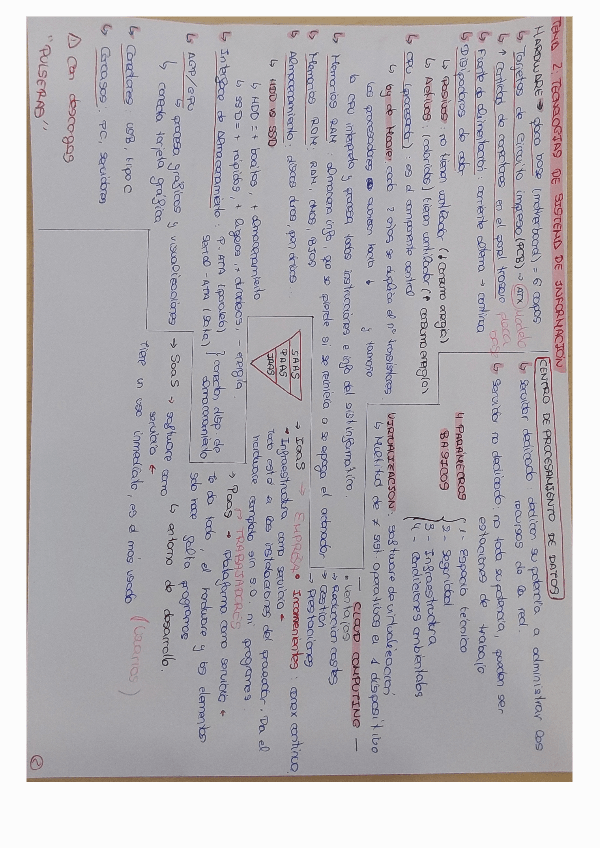 TEMA 2: TECNOLOGÍAS DE SISTEMA DE INFORMACIÓN
HARDWARE → placa base (motherboard) = 6 capas
↳ Tarjetas de circuito impreso (PCB) → ATX modelo placa base
↳ ↑ cantidad de conectores en el panel trasero
↳ Fuente de alimentación: corriente alterna → continua
↳ Disipadores de calor
↳ Pasivos: no tienen ventilador (↓ consumo energía)
↳ Activos: (coloridos) tienen ventilador (↑ consumo energía)
↳ CPU (procesador): es el componente central
↳ Ley de Moore: cada 2 años se duplica el nº transistores
Los procesadores
↳ tamaño
la CPU interpreta y procesa todas instrucciones e info del sist. informático.
↳ Memorias RAM: almacena info, que se pierde si se reinicia o se apaga el ordenador
↳ Memorias ROM: RAM, CMOS, BIOS
↳ Almacenamiento: discos duros, pen drives
↳ HDD vs SSD
↳ HDD = + baratos, + almacenamiento
↳ SSD = + rápidos, + ligeros, + duraderos, - energía
↳ Interfaces de almacenamiento: P. ATA (paralela)
Serial-ATA (Sata)
} conecta, disp de almacenamiento
↳ AGP/GPU
↳ procesa gráficos y visualizaciones
↳ conecta tarjeta gráfica
↳ Conectores: USB, tipo C
↳ Carcasas: PC, servidores
⚠ Con descargas
"PULSERAS"
CENTRO DE PROCESAMIENTO DE DATOS
↳ Servidor dedicado: dedican su potencia a administrar los
recursos de la red.
↳ Servidor no dedicado: no toda su potencia, pueden ser
estaciones de trabajo
4 PARÁMETROS
BÁSICOS
1 - Espacio técnico
2 - Seguridad
3 - Infraestructura
4 - Condiciones ambientales
VIRTUALIZACIÓN: software de virtualización
↳ Multitud de ≠ sist. operativos el 1 dispositivo
— CLOUD COMPUTING —
• Ventajas
→ Reducción costes
→ Gestión
→ Prestaciones
• Inconvenientes: conex continua
→ IaaS → EMPRESA
• Infraestructura como servicio ←
Todo está a las instalaciones del proveedor. Da el
hardware completo sin S.O. ni programas
SAAS
PAAS
IAAS
→ PaaS → Plataforma como servicio ←
→ TRABAJADORES
te da todo, el hardware y los elementos
solo hace falta programas
↳ entorno de desarrollo.
→ SaaS → software como
servicio ←
Tiene un uso inmediato, es el más usado (usuarios)
2